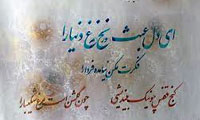 ای دل عبث مخور غم دنیا را
فکرت مکن نیامده فردا را
کنج قفس چو نیک بیندیشی
چون گلشن است مرغ شکیبا را